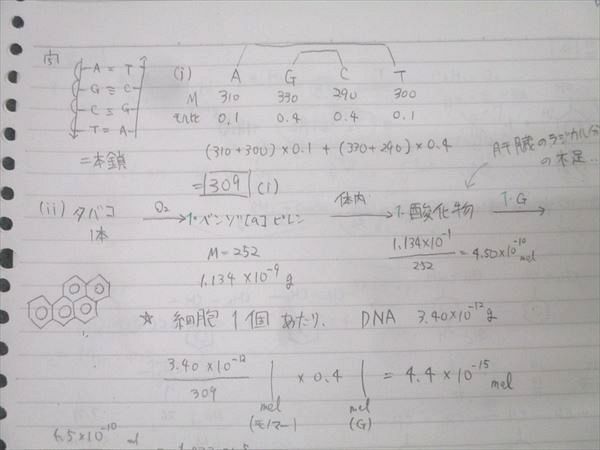 A = T
G ≡ C
C ≡ G
T = A
二本鎖
(i) A G C T
M 310 330 290 300
モル比 0.1 0.4 0.4 0.1
(310+300)×0.1 + (330+290)×0.4
= 309 (i)
肝臓のラジカル
の不足...
(ii) タバコ 1本 O₂ → ベンゾ[a]ピレン 体内 → 酸化物 G →
M = 252
1.134 × 10⁻⁹ g
1.134×10⁻¹ / 252 = 4.50×10⁻¹⁰ mol
☆ 細胞1個あたり、 DNA 3.40×10⁻¹² g
3.40 × 10⁻¹² / 309 | × 0.4 | = 4.4 × 10⁻¹⁵ mol
mol (モノマー) mol (G)